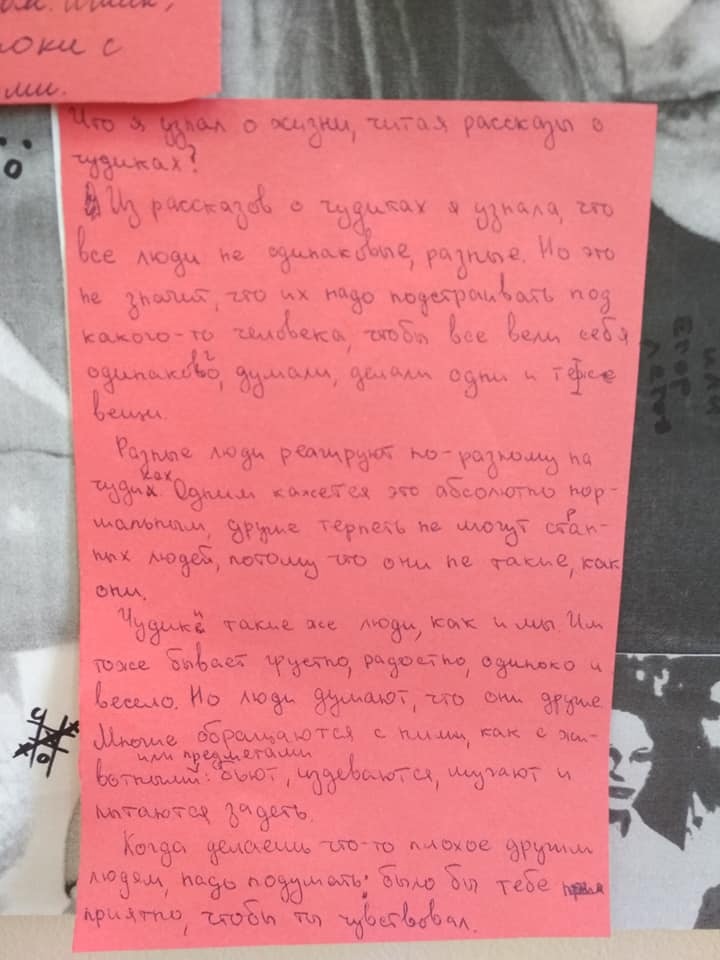 юки с
ми.
Что я узнал о жизни, читая рассказы о
чудиках?
Из рассказов о чудиках я узнала, что
все люди не одинаковые, разные. Но это
не значит, что их надо подстраивать под
какого-то человека, чтобы все вели себя
одинаково, думали, делали одни и те же
вещи.
Разные люди реагируют по-разному на
чудиках. Одним кажется это абсолютно нор-
мальным, другие терпеть не могут стран-
ных людей, потому что они не такие, как
они.
Чудики такие же люди, как и мы. Им
тоже бывает грустно, радостно, одиноко и
весело. Но люди думают, что они другие
Многие обращаются с ними, как с жи-
или предметами
вотными: бьют, издеваются, шугают и
пытаются задеть.
Когда делаешь что-то плохое другим
людям, надо подумать: было бы тебе
приятно, чтобы ты чувствовал.